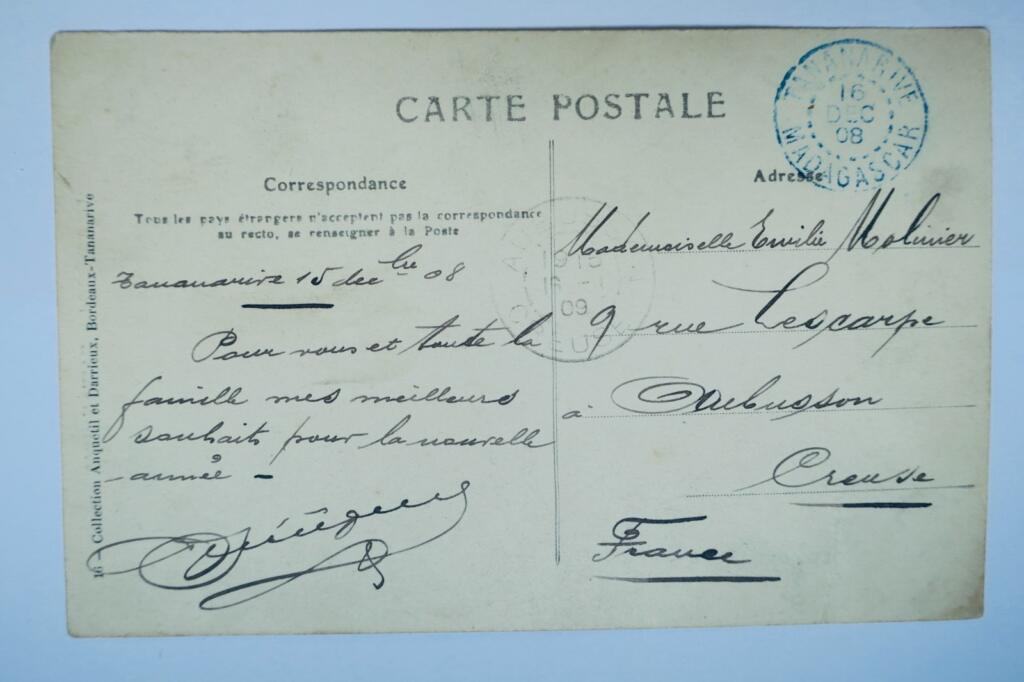 CARTE POSTALE
TANANARIVE
16
DEC
08
MADAGASCAR
Correspondance
Tous les pays étrangers n'acceptent pas la correspondance
au recto, se renseigner à la Poste
Tananarive 15 dec bre 08
Pour vous et toute la
famille mes meilleurs
souhaits pour la nouvelle
année -
Adresse
Mademoiselle Emilie Molinier
9 rue Lescarpe
à Aubusson
Creuse
France
09
16 - Collection Anquetil et Darrieux, Bordeaux-Tananarive